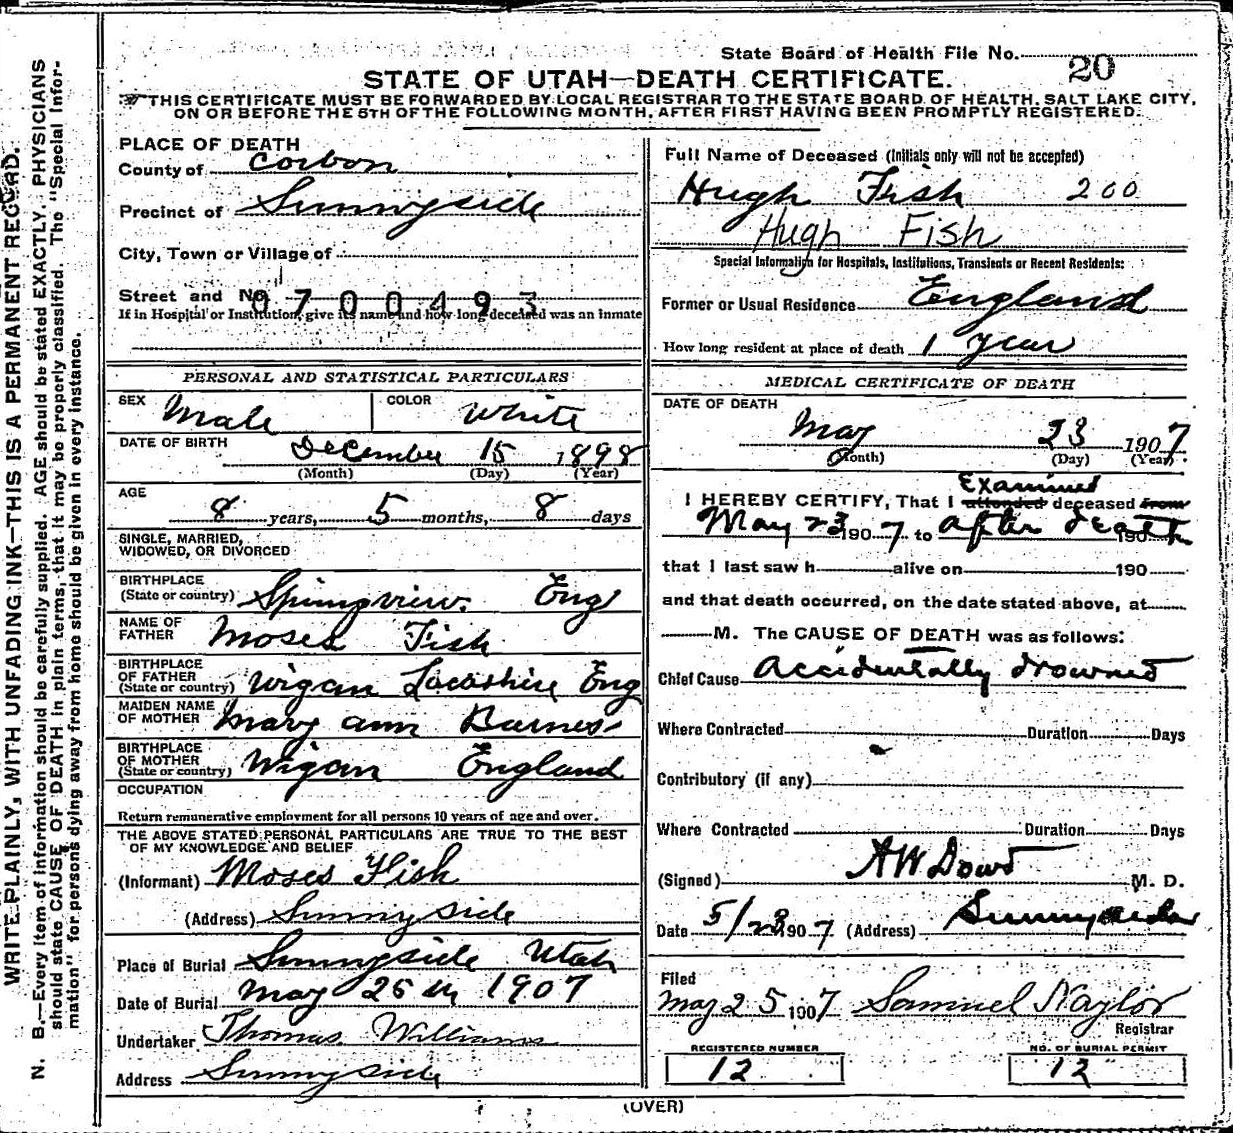 State Board of Health File No. 20
STATE OF UTAH—DEATH CERTIFICATE.
THIS CERTIFICATE MUST BE FORWARDED BY LOCAL REGISTRAR TO THE STATE BOARD OF HEALTH, SALT LAKE CITY,
ON OR BEFORE THE 5TH OF THE FOLLOWING MONTH, AFTER FIRST HAVING BEEN PROMPTLY REGISTERED.
WRITE PLAINLY, WITH UNFADING INK—THIS IS A PERMANENT RECORD.
N. B.—Every item of information should be carefully supplied. AGE should be stated EXACTLY. PHYSICIANS
should state CAUSE OF DEATH in plain terms, that it may be properly classified. The "Special Infor-
mation" for persons dying away from home should be given in every instance.
PLACE OF DEATH
County of Corbon
Precinct of Sunnyside
City, Town or Village of
Street and No. 0700493
If in Hospital or Institution, give its name and how long deceased was an inmate
PERSONAL AND STATISTICAL PARTICULARS
SEX Male COLOR White
DATE OF BIRTH December 15 1898
(Month) (Day) (Year)
AGE
8 years, 5 months, 8 days
SINGLE, MARRIED,
WIDOWED, OR DIVORCED
BIRTHPLACE
(State or country) Springview. Eng
NAME OF
FATHER Moses Fish
BIRTHPLACE
OF FATHER
(State or country) Wigan Lacashire Eng
MAIDEN NAME
OF MOTHER Mary ann Barnes
BIRTHPLACE
OF MOTHER
(State or country) Wigan England
OCCUPATION
Return remunerative employment for all persons 10 years of age and over.
THE ABOVE STATED PERSONAL PARTICULARS ARE TRUE TO THE BEST
OF MY KNOWLEDGE AND BELIEF
(Informant) Moses Fish
(Address) Sunnyside
Place of Burial Sunnyside Utah
Date of Burial May 25 th 1907
Undertaker Thomas Williams
Address Sunnyside
Full Name of Deceased (Initials only will not be accepted)
Hugh Fish 200
Hugh Fish
Special Information for Hospitals, Institutions, Transients or Recent Residents:
Former or Usual Residence England
How long resident at place of death 1 year
MEDICAL CERTIFICATE OF DEATH
DATE OF DEATH
May 23 1907
(Month) (Day) (Year)
Examined
I HEREBY CERTIFY, That I attended deceased from
May 23 1907 to after death 190
that I last saw h alive on 190
and that death occurred, on the date stated above, at
M. The CAUSE OF DEATH was as follows:
Chief Cause Accidentally drowned
Where Contracted Duration Days
Contributory (if any)
Where Contracted Duration Days
(Signed) A W Dowd M. D.
Date 5/23 1907 (Address) Sunnyside
Filed
May 25 1907 Samuel Naylor
Registrar
REGISTERED NUMBER NO. OF BURIAL PERMIT
12 12
(OVER)